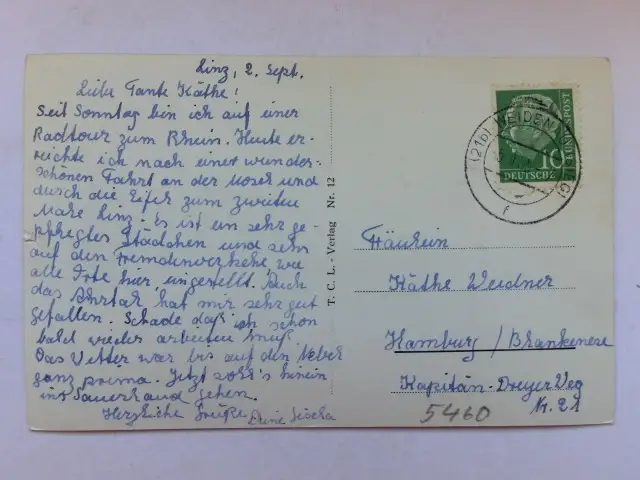 Linz, 2. Sept.
Liebe Tante Käthe!
Seit Sonntag bin ich auf einer
Radtour zum Rhein. Heute er-
reichte ich nach einer wunder-
schönen Fahrt an der Mosel und
durch die Eifel zum zweiten
Male Linz. Es ist ein sehr ge-
pflegtes Städtchen und sehr
auf den Fremdenverkehr, wie
alle Orte hier, eingestellt. Auch
das Ahrtal hat mir sehr gut
gefallen. Schade daß ich schon
bald wieder arbeiten muß.
Das Wetter war bis auf den Nebel
ganz prima. Jetzt soll's hinein
ins Sauerland gehen.
Herzliche Grüße Deine
T. C. L. - Verlag Nr. 12
(21b) WEIDENAU
10
DEUTSCHE
BUNDESPOST
Fräulein
Käthe Weidner
Hamburg / Blankenese
Kapitän-Dreyer Weg
Nr. 21
5460